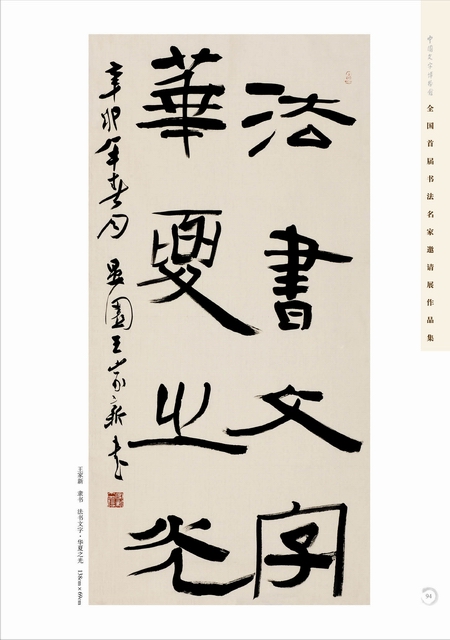 中国文字博物馆
全国首届书法名家邀请展作品集
法書文字
華夏之光
辛卯年春月 園王家新書
王家新 隶书 法书文字·华夏之光 138cm×69cm
94